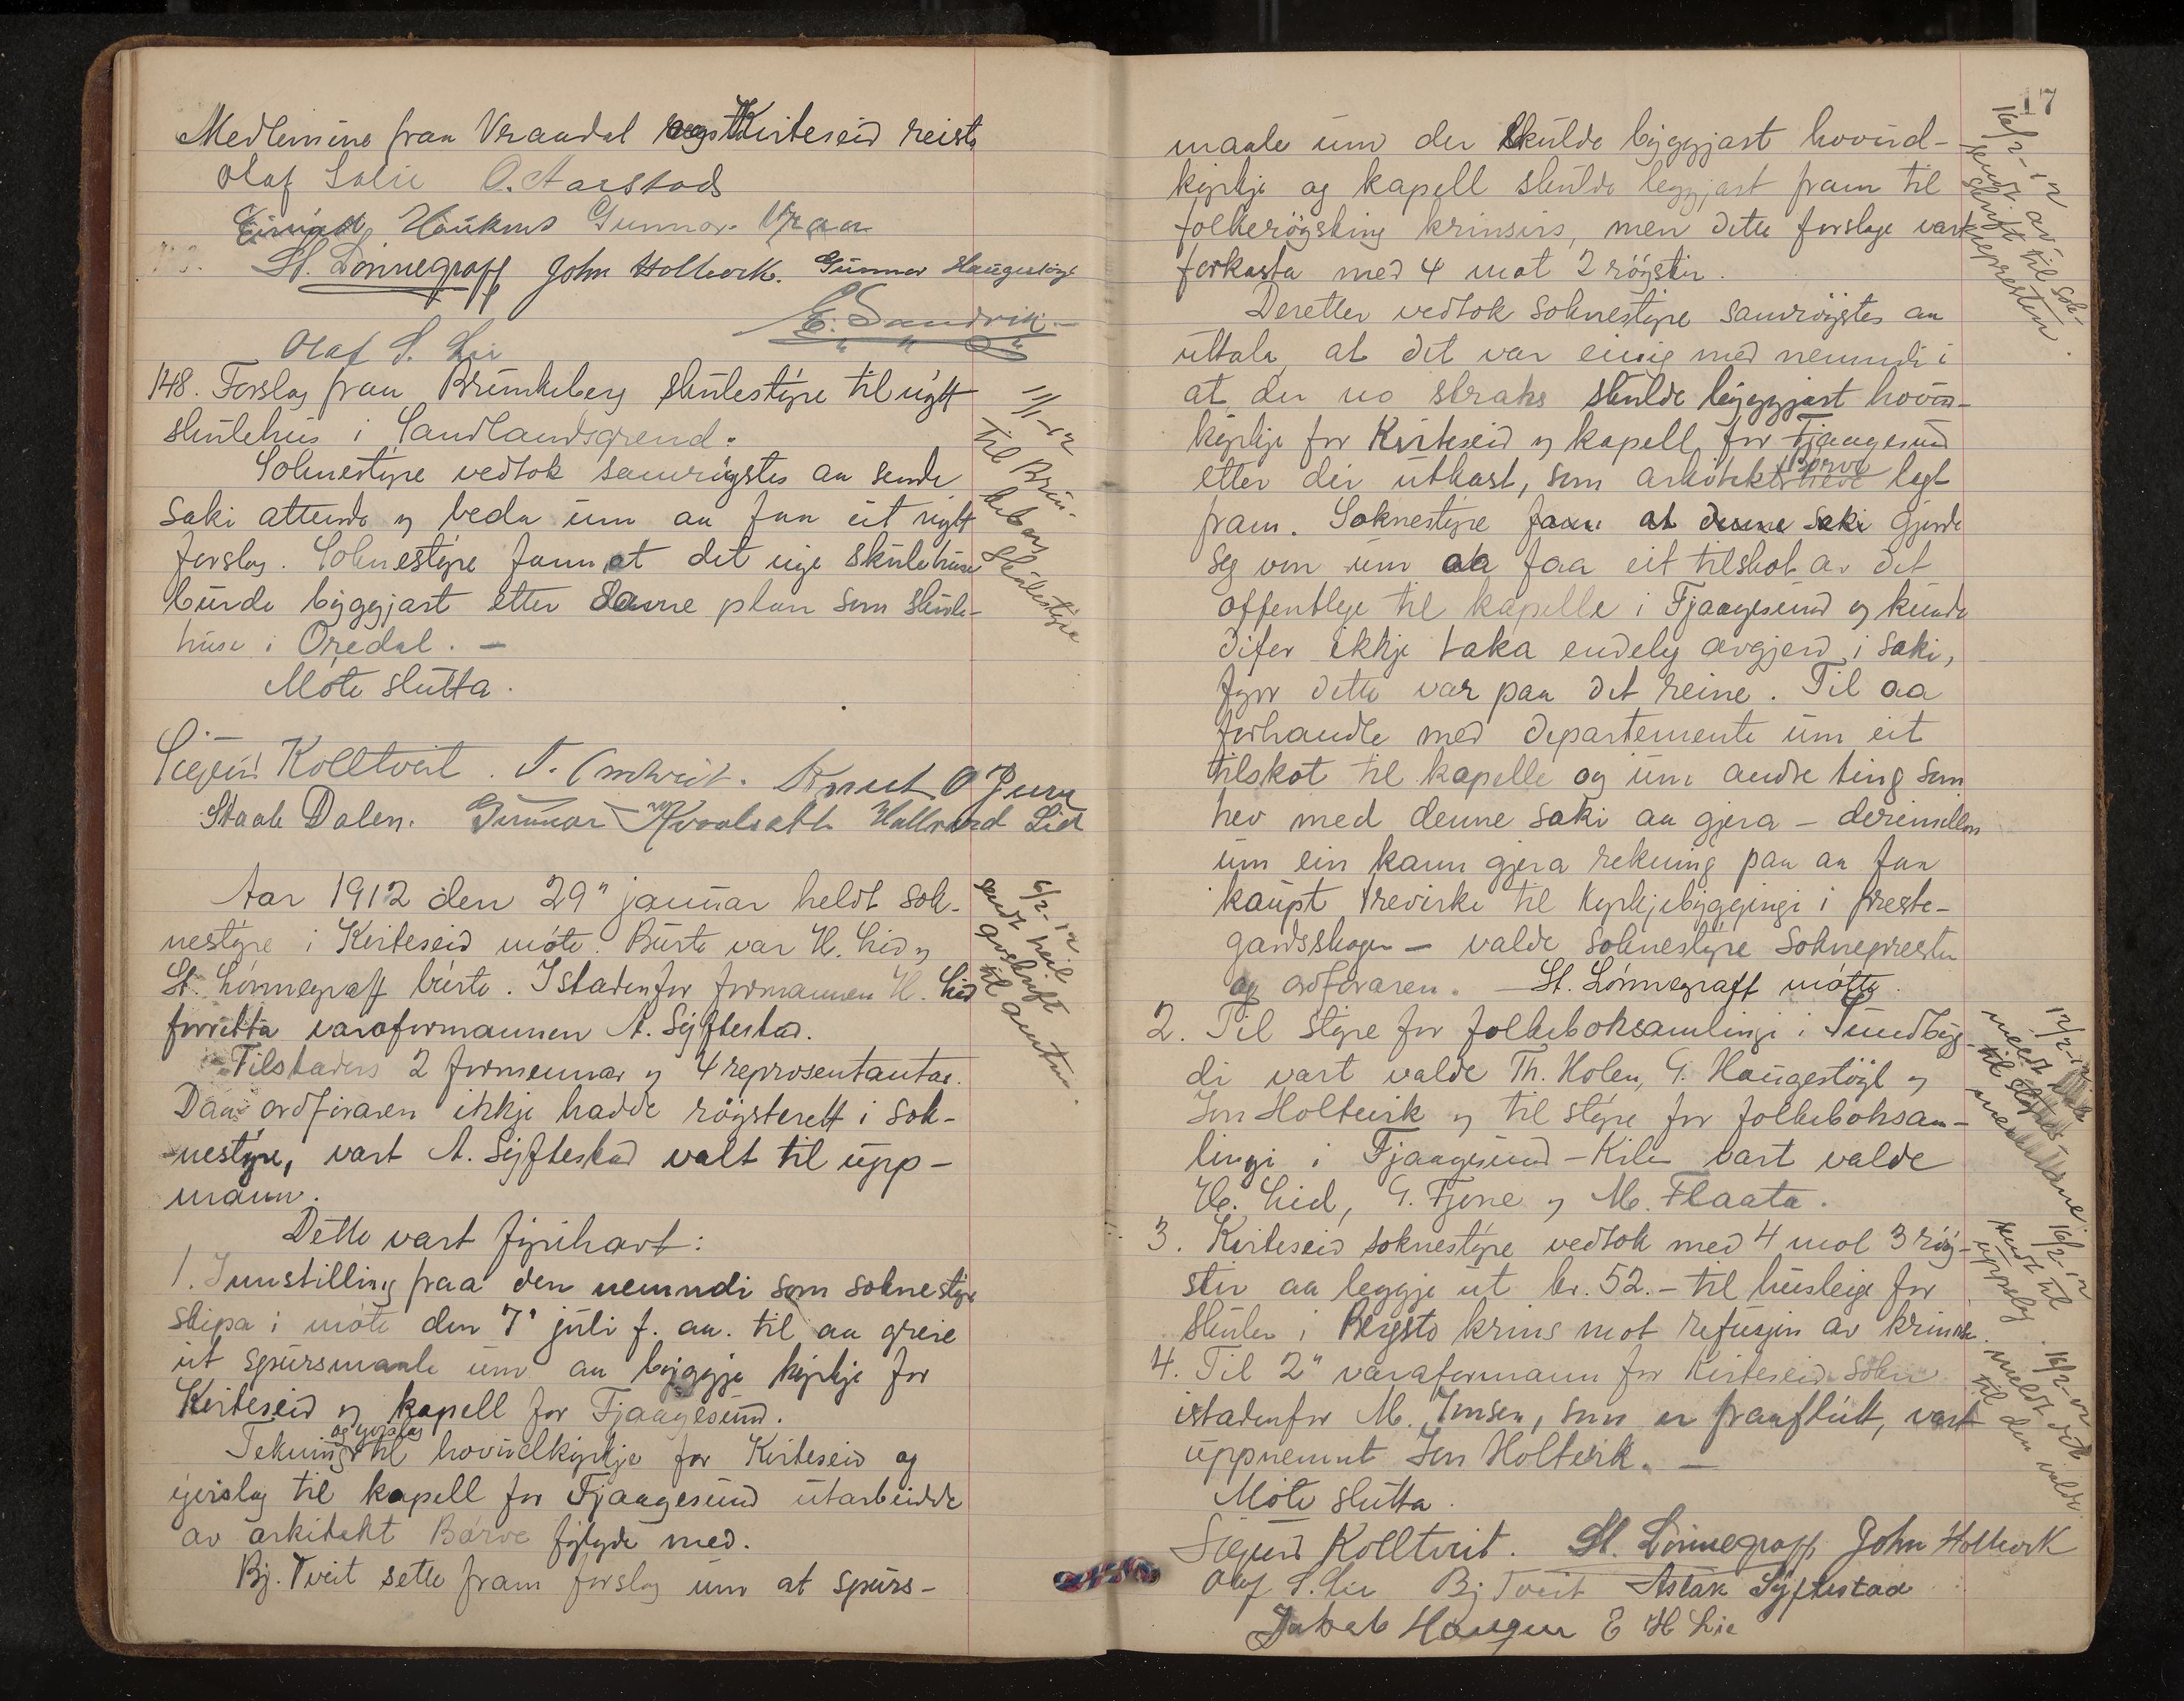 Medlemine fraa Vraadal og Kviteseid reiste
Olaf Salie O. Aarstad
Haukum Gunnar Vraa
St. Lønnegraff John Holtvik. Gunnar Haugestøyl
E. Sandvik
Olaf S. Lie
148. Forslag fraa Brunkeberg skulestyre til nytt
skulehus i Sandlandsgrend.
Soknestyre vedtok samrøystes aa senda
saki attende og beda um aa faa eit nytt
forslag. Soknestyre fann at det nye skulehuse
burde byggjast etter same plan som skule-
huse i Øredal. —
Møte slutta.
11/1-12
til Brun-
keberg
skulestyre
Sigurd Kolltveit. T. Omtveit. Knut O Juve
Staale Dalen. Gunnar Kvaalsøtt Hallvard Lid
Aar 1912 den 29" januar heldt sok-
nestyre i Kviteseid møte. Burte var H. Lid og
St. Lønnegraff burte. Istadenfor formannen H. Lid
forretta varaformannen A. Syftestad.
Tilstades 2 formennar og 4 representantar.
Daa ordføraren ikkje hadde røysterett i sok-
nestyre, vart A. Syftestad valt til upp-
mann.
6/2-12
sendt heil
avskrift
til amtm.
Dette vart fyrihavt:
1. Innstilling fraa den nemndi som soknestyre
skipa i møte den 7' juli f. aa. til aa greie
ut spursmaale um aa byggje kyrkje for
Kviteseid og kapell for Fjaagesund.
og yvislag
Tekning til hovudkyrkje for Kviteseid og
yvislag til kapell for Fjaagesund utarbeidde
av arkitekt Børve fylgde med.
Bj. Tveit sette fram forslag um at spurs-
17
maale um der skulde byggjast hovud-
kyrkje og kapell skulde leggjast fram til
folkerøysting krinsvis, men dette forslage vart
forkasta med 4 mot 2 røyster.
16/2-12
sendt av-
skrift til sok-
nepresten.
Deretter vedtok soknestyre samrøystes aa
uttala, at det var einig med nemndi i
at der no straks skulde byggjast hovud-
kyrkje for Kviteseid og kapell for Fjaagesund
etter dei utkast, som arkitekt Børve hev legt
fram. Soknestyre fann at denne saki gjorde
seg von um aa faa eit tilskot av det
offentlege til kapelle i Fjaagesund og kunde
difor ikkje taka endeleg avgjerd i saki,
fyrr dette var paa det reine. Til aa
forhandle med departemente um eit
tilskot til kapelle og um andre ting som
hev med denne saki aa gjera — derimellom
um ein kann gjera rekning paa aa faa
kaupt trevirke til kyrkjebyggingi i preste-
gardsskogen — valde soknestyre soknepresten
og ordføraren. — St. Lønnegraff møtte.
2. Til styre for folkeboksamlingi i Sundbyg-
di vart valde Th. Holen, G. Haugestøyl og
Jon Holtvik og til styre for folkeboksam-
lingi i Fjaagesund-Kilen vart valde
H. Lid, G. Fjone og M. Flaata.
12/2-12
meldt
til
3. Kviteseid soknestyre vedtok med 4 mot 3 røy-
ster aa leggje ut kr. 52.- til husleige for
skulen i Bergsto krins mot refusjon av krinsen.
16/2-12
sendt til
uppslag.
4. Til 2" varaformann for Kviteseid sokn
istadenfor M. Jensen, som er fraaflutt, vart
uppnemnt Jon Holtvik. —
16/2-12
meldt
til den valde
Møte slutta.
Sigurd Kolltveit. St. Lønnegraff John Holtvik
Olaf S. Lie Bj Tveit Aslak Syftestad
Jakob Haugen E H Lie